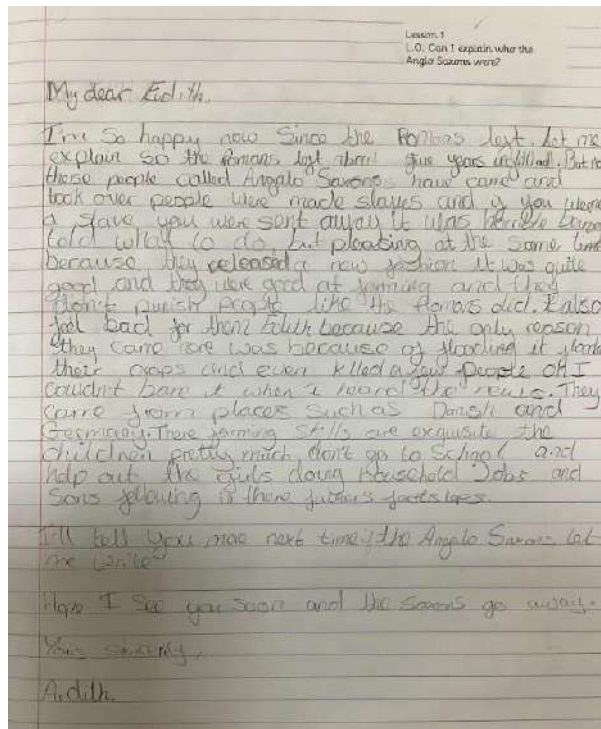 Lesson 1
L.O. Can I explain who the
Anglo Saxons were?
My dear Eidith.
I'm So happy now Since the Romans left. Let me
explain so the Romans left about five years. But no
those people called Angalo Saxons have came and
took over people were made slaves and if you were
a slave you were sent away it was being
told what to do, but pleasing at the same time
because they released a new fashion it was quite
good and they were good at farming and they
don't punish people like the Romans did. I also
feel bad for them because the only reason
they came here was because of flooding it
their crops and even killed a few people oh I
couldn't bare it when I heard the news. They
came from places such as Danish and
Germany. There farming skills are exquisite the
children pretty much don't go to School and
help out the girls doing household Jobs and
Sons following in there fathers
I'll tell you more next time if the Angalo Saxons let
me write
Hope I See you soon and the Saxons go away.
Your
Aidith.